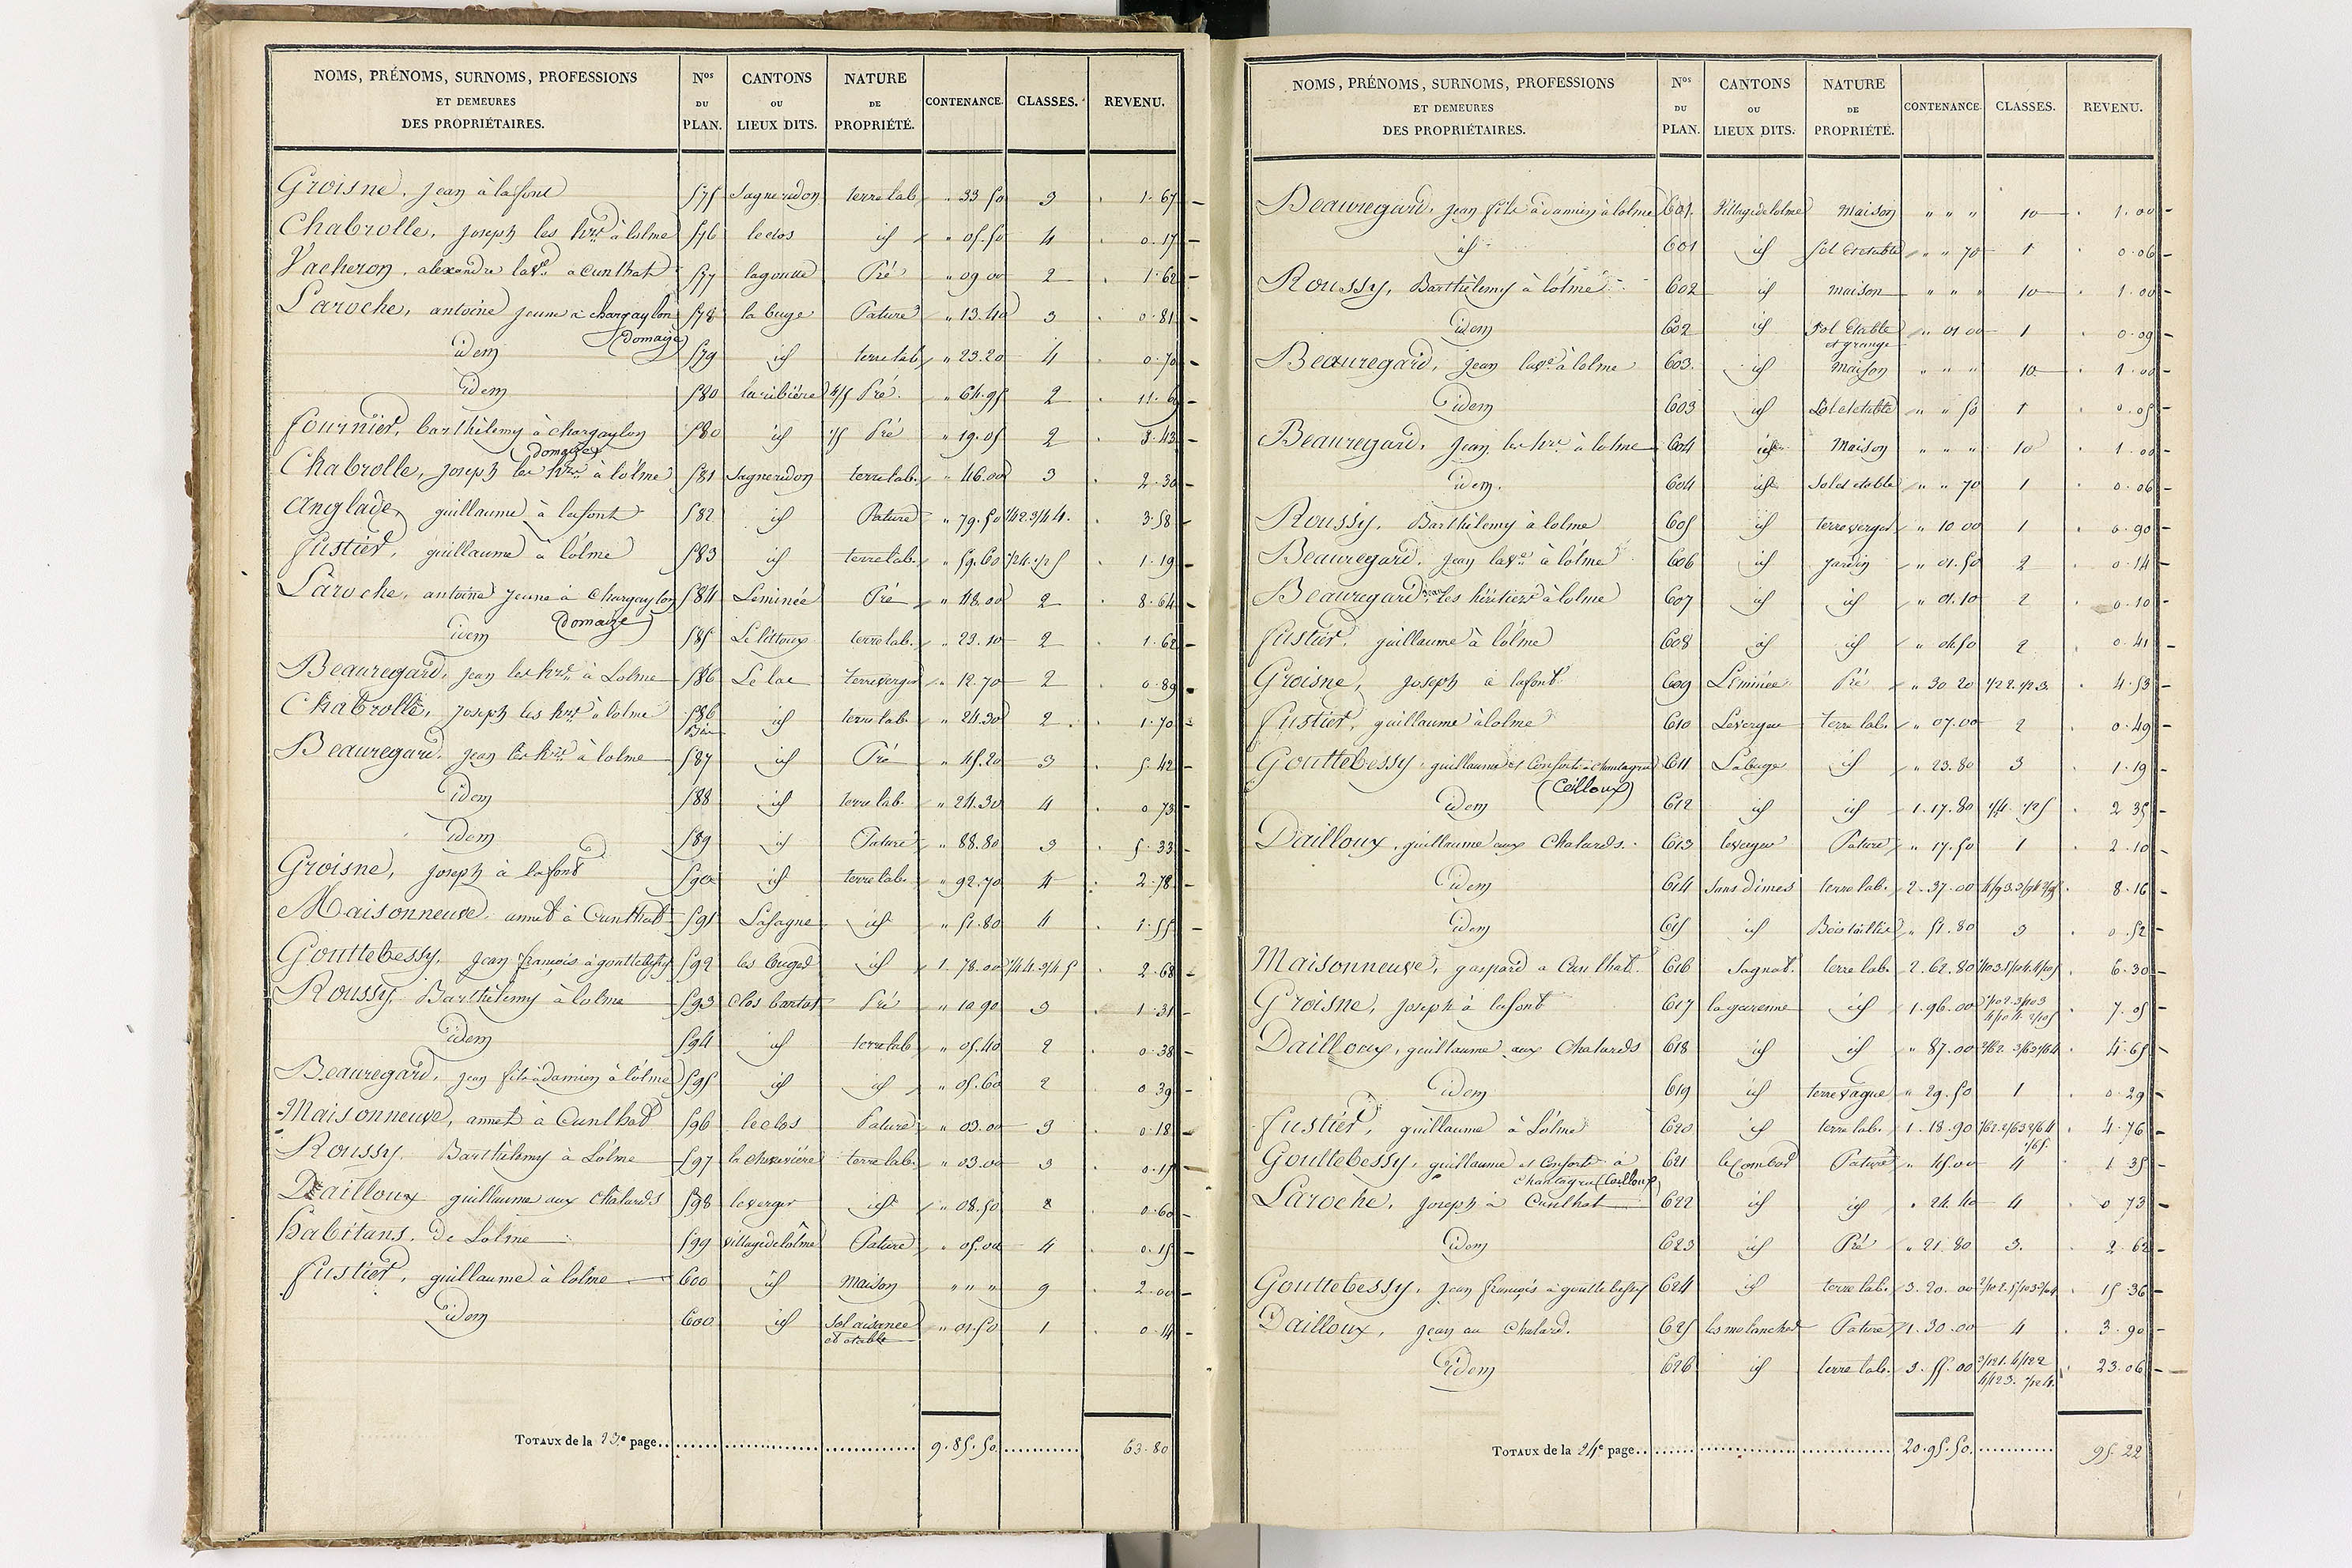 NOMS, PRÉNOMS, SURNOMS, PROFESSIONS ET DEMEURES DES PROPRIÉTAIRES. Nos DU PLAN. CANTONS OU LIEUX DITS. NATURE DE PROPRIÉTÉ. CONTENANCE. CLASSES. REVENU.
Groisne, jean à lafont 575 Sagneredon terre lab. " 33 50 3 1.67
Chabrolle, joseph les hers à lolme 576 le clos id " 05.50 4 0.17
Vacheron, alexandre la ve a cunlhat 577 lagoutte Pré " 09 00 2 1.62
Laroche, antoine jeune à chargaylon 578 la buge Pature " 13.40 3 0.81
(Domaize)
idem 579 id terre lab " 23.20 4 0.70
idem 580 la ribière 4/5 Pré " 64.95 2 11.69
fournier, barthélemy à chargaylon 580 id 1/5 Pré " 19.05 2 3.43
(domaize)
Chabrolle, joseph les hers à lolme 581 Sagneredon terre lab. " 46.00 3 2.30
Anglade, guillaume à lafont 582 id Pature " 79.50 1/4 2.3/4 4. 3.58
fustier, guillaume à lolme 583 id terre lab. " 59.60 1/2 4.1/2 5 1.19
Laroche, antoine jeune à Chargaylon 584 Leminée Pré " 48.00 2 8.64
(Domaize)
idem 585 Le littoux terre lab. " 23.10 2 1.62
Beauregard, jean les hers à Lolme 586 Le lac terre verger " 12.70 2 0.89
Chabrolle, joseph les hers à lolme 586 Bis id terre lab. " 24.30 2 1.70
Beauregard, jean les hers à lolme 587 id Pré " 45.20 3 5.42
idem 588 id terre lab. " 24.30 4 0.73
idem 589 id Pature " 88.80 3 5.33
Groisne, joseph à lafont 590 id terre lab. " 92.70 4 2.78
Maisonneuve, annet à Cunlhat 591 Lasagne id " 51.80 4 1.55
Gouttebessy, jean françois à gouttebessy 592 les buges id 1.78.00 1/4 4.3/4 5 2.68
Roussy, Barthélemy à lolme 593 Clos bartot Pré " 10 90 3 1.31
idem 594 id terre lab " 05.40 2 0.38
Beauregard, jean fils à damien à lolme 595 id id " 05.60 2 0.39
Maisonneuve, annet à Cunlhat 596 le clos Pature " 03.00 3 0.18
Roussy, Barthélemy à Lolme 597 la cheneviére terre lab. " 03.00 3 0.15
Dailloux guillaume aux chalards 598 le verger id " 08.50 2 0.60
habitans, De Lolme 599 village de lolme Pature " 05.00 4 0.15
fustier, guillaume à lolme 600 id Maison " " " 9 2.00
idem 600 id Sol aisance et étable " 01.50 1 0.14
TOTAUX de la 23.e page 9.85.50 63.80
NOMS, PRÉNOMS, SURNOMS, PROFESSIONS ET DEMEURES DES PROPRIÉTAIRES. Nos DU PLAN. CANTONS OU LIEUX DITS. NATURE DE PROPRIÉTÉ. CONTENANCE. CLASSES. REVENU.
Beauregard, jean fils à damien à lolme 601. Village de lolme Maison " " " 10 1.00
id 601 id sol et etable " " 70 1 0.06
Roussy, Barthélemy à lolme 602 id maison " " " 10 1.00
idem 602 id Sol Etable et grange " 01 00 1 0.09
Beauregard, jean la ve à lolme 603. id Maison " " " 10 1.00
idem 603 id Sol et etable " " 50 1 0.05
Beauregard, jean les hers à lolme 604 id Maison " " " 10 1.00
idem. 604 id Sol et etable " " 70 1 0.06
Roussy, Barthélemy à lolme 605 id terre verger " 10 00 1 0.90
Beauregard, jean la ve à lolme 606 id jardin " 01.50 2 0.14
Beauregard jean les héritiers à lolme 607 id id " 01.10 2 0.10
fustier, guillaume à lolme 608 id id " 04.50 2 0.41
Groisne, joseph à lafont 609 Leminée Pré " 30 20 1/2 2.1/2 3. 4.53
fustier, guillaume à lolme 610 Leverger terre lab. " 07.00 2 0.49
Gouttebessy, guillaume et Consorts à chantagrue 611 Labuge id " 23.80 3 1.19
(Ceilloux)
idem 612 id id 1.17.80 1/2 4. 1/2 5 2 35
Dailloux, guillaume aux Chalards. 613 leverger Pature " 17.50 1 2.10
idem 614 Sans dimes terre lab. 2.37.00 8.16
idem 615 id Bois taillis " 51.80 3 0.52
Maisonneuve, gaspard a Cunlhat. 616 Sagnat. terre lab. 2.62.80 6.30
Groisne, joseph à lafont 617 la garenne id 1.96.00 7.05
Dailloux, guillaume aux Chalards 618 id id " 87.00 4.65
idem 619 id terre vague " 29.50 1 0.29
fustier, guillaume à Lolme 620 id terre lab. 1.18.90 4.76
Gouttebessy, guillaume et Consorts à 621 le Combat Pature " 45.00 4 1 35
chantagrue (Ceilloux)
Laroche, joseph à Cunlhat 622 id id " 24.40 4 0 73
idem 623 id Pré " 21.80 3. 2.62
Gouttebessy, jean françois à gouttebessy 624 id terre lab. 3.20.00 15 36
Dailloux, jean au Chalard. 625 les molanches Pature 1.30.00 4 3.90
idem 626 id terre lab. 3.55.00 23.06
TOTAUX de la 24e page 20.95.50. 95.22